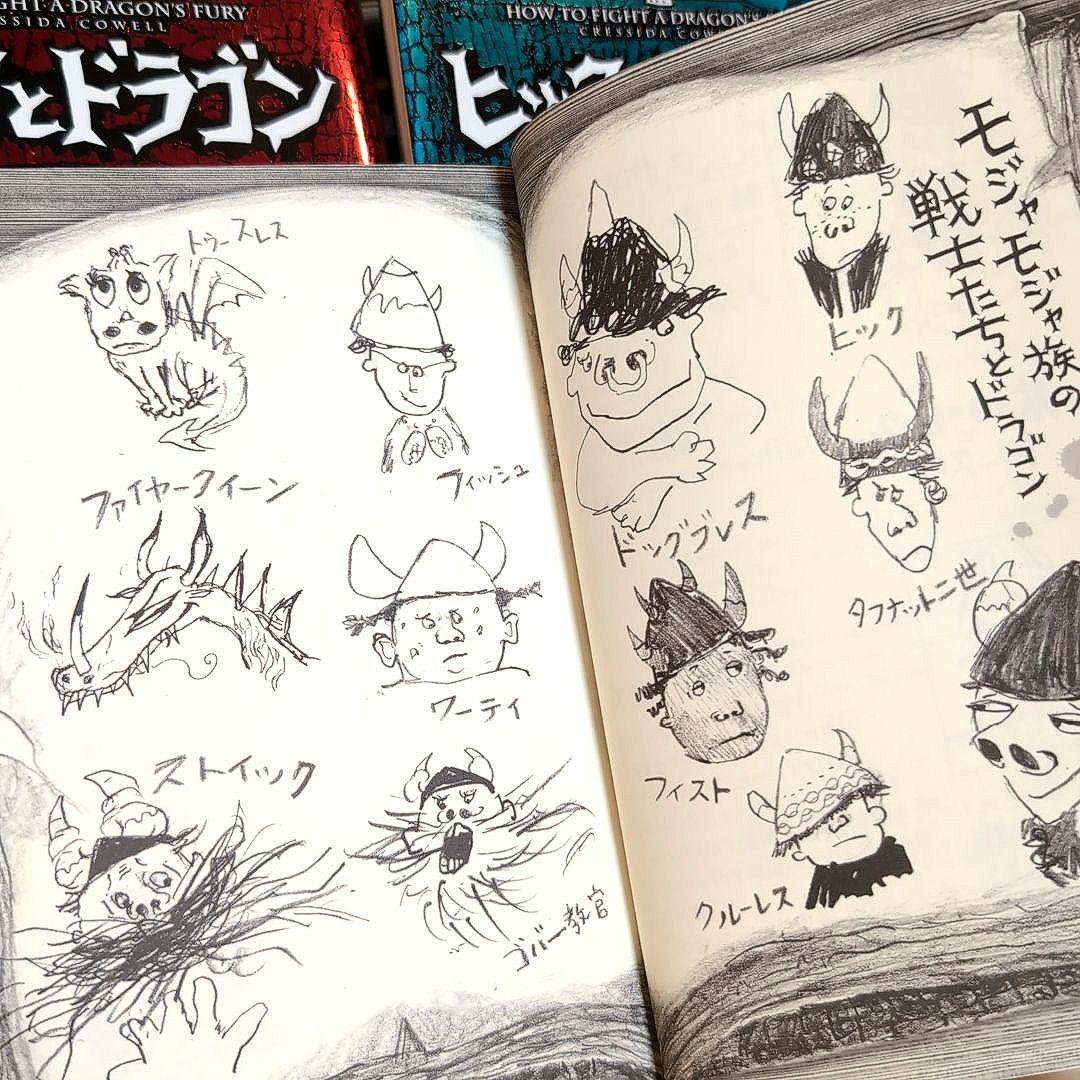 GHT A DRAGON'S FURY
ESSIDA COWELL
とドラゴン
HOW TO FIGHT A DRAGON'S
CRESSIDA COWE
ヒック
モジャモジャ族の
戦士たちとドラゴン
ヒック
ドッグブレス
タフナット二世
フィスト
クルーレス
トゥースレス
フィッシュ
ファイヤークイーン
ワーティ
ストイック
ゴバー教官